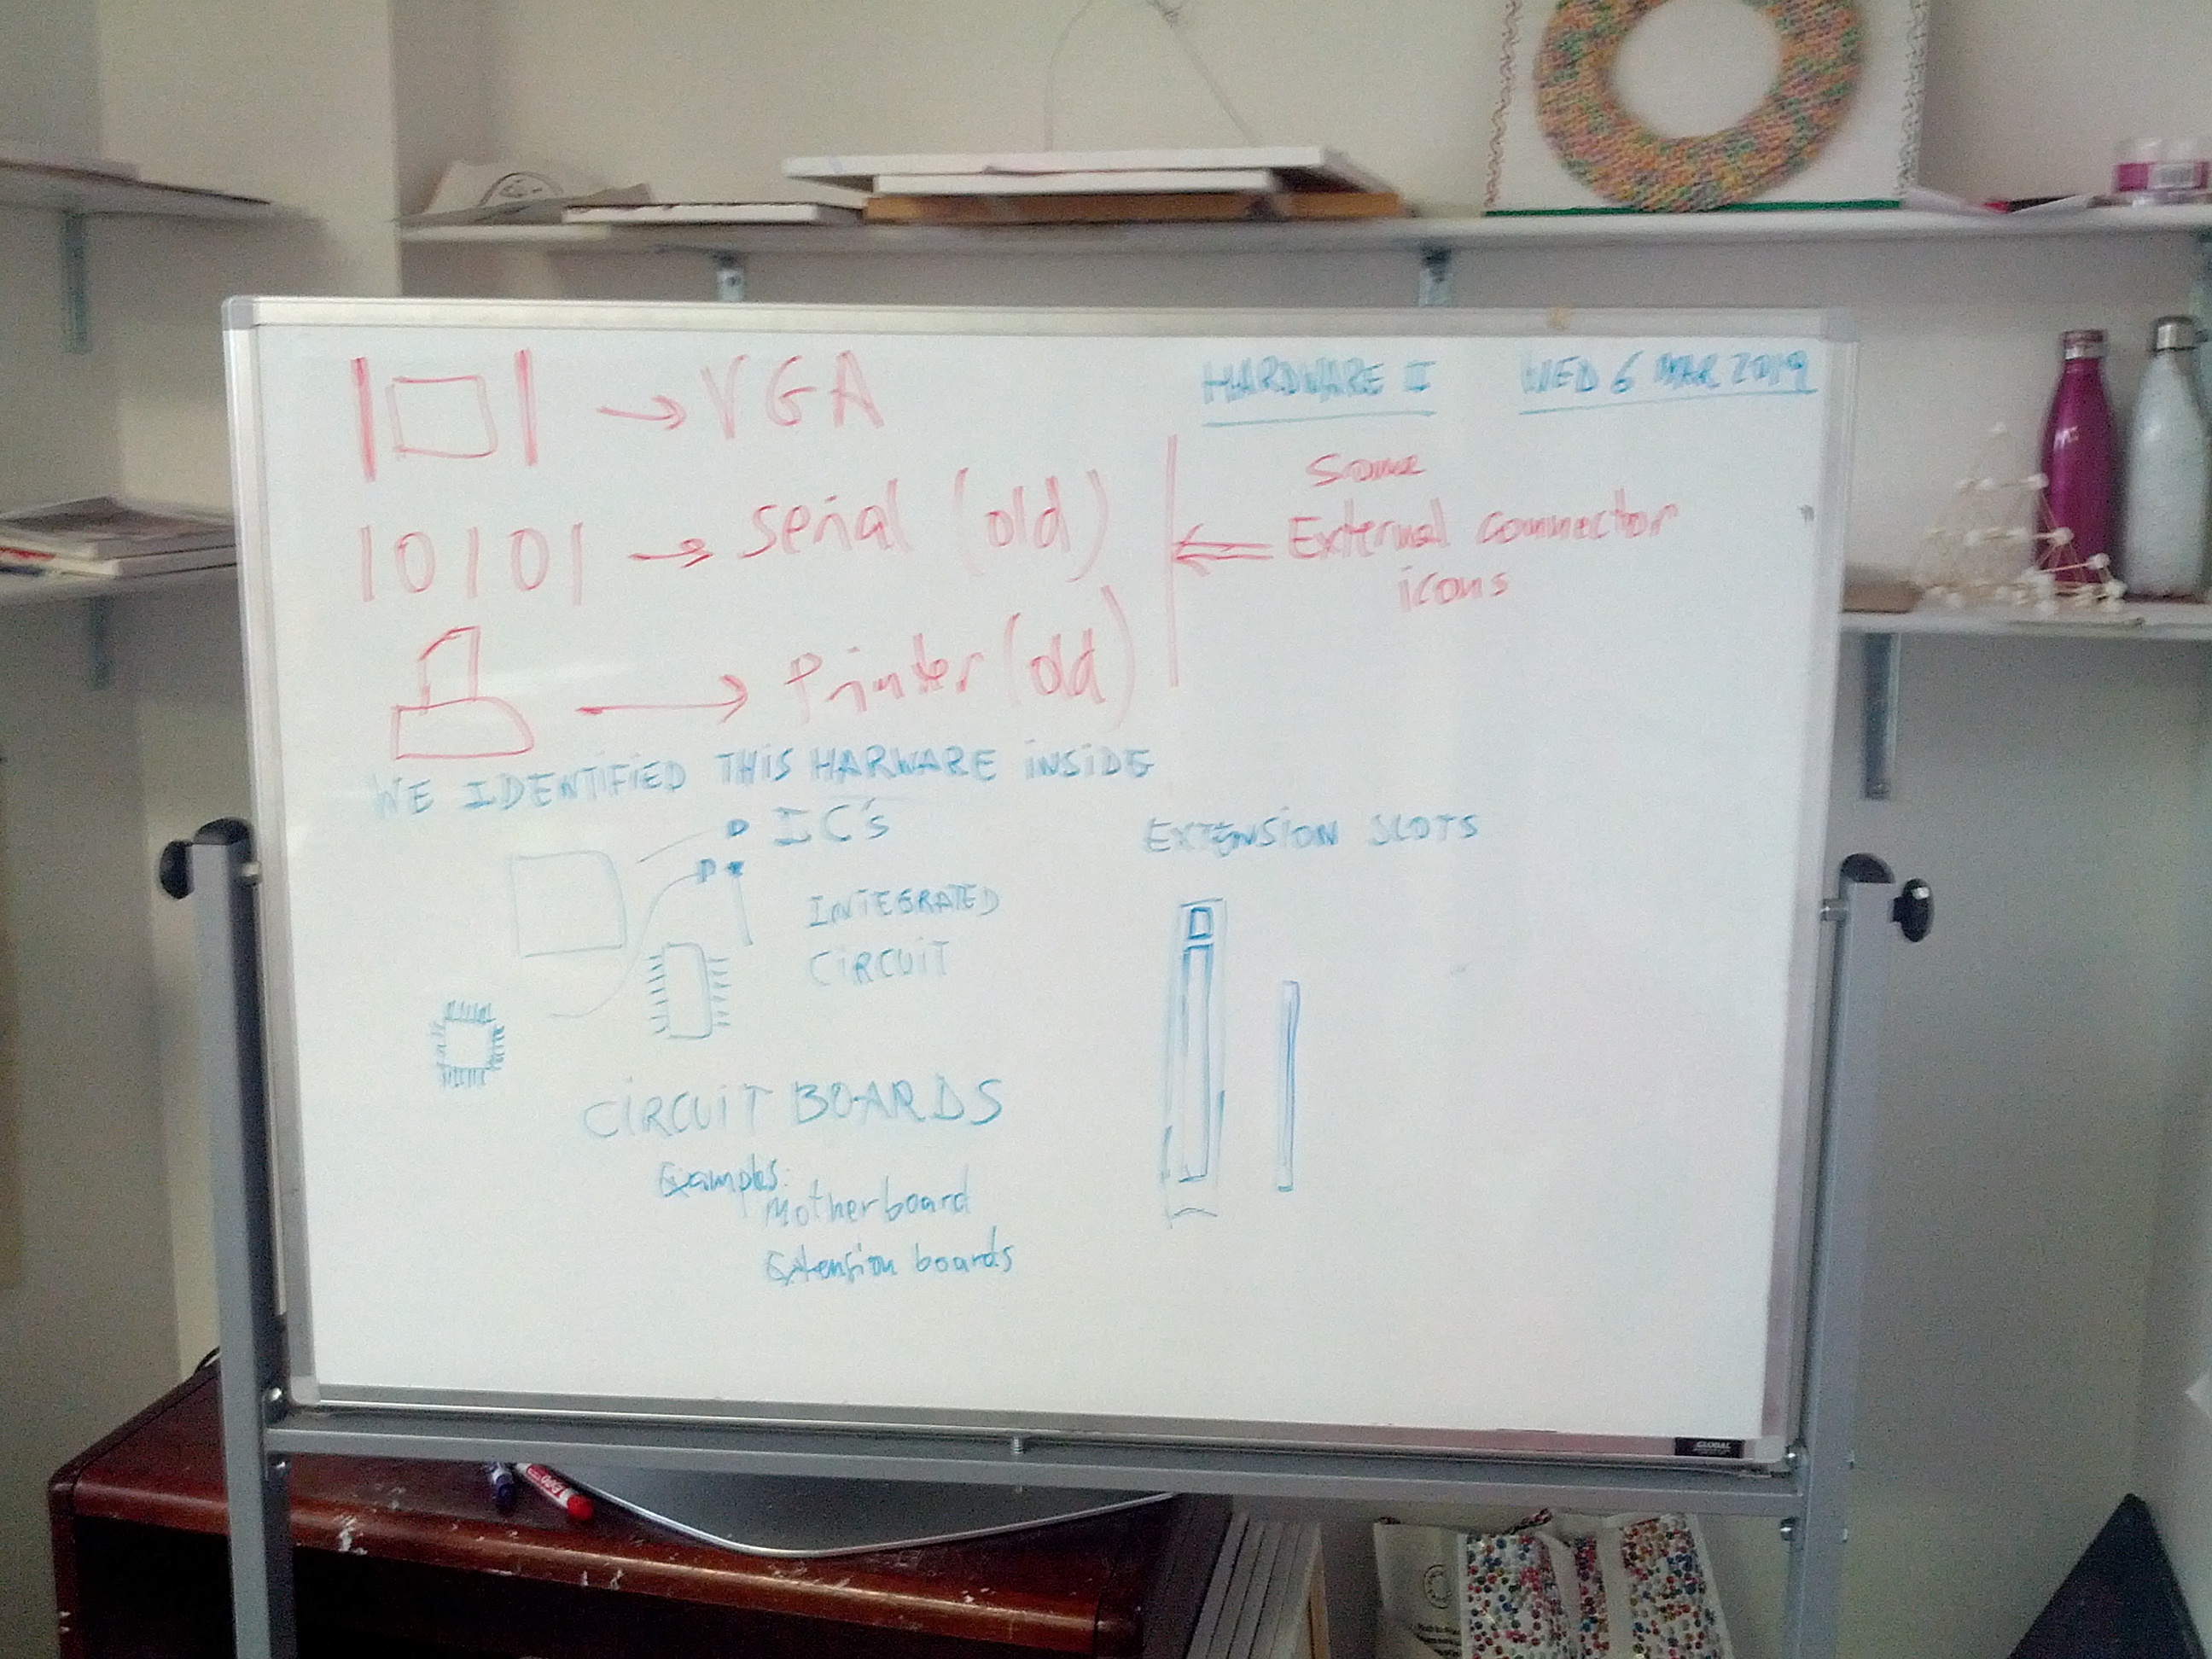 HARDWARE I WED 6 MAR 2019
→ VGA
10101 → serial (old)
→ Printer (old)
some
External connector
icons
WE IDENTIFIED THIS HARWARE INSIDE
IC's
INTEGRATED
CIRCUIT
EXTENSION SLOTS
CIRCUIT BOARDS
Examples:
Motherboard
Extension boards
GLOBAL